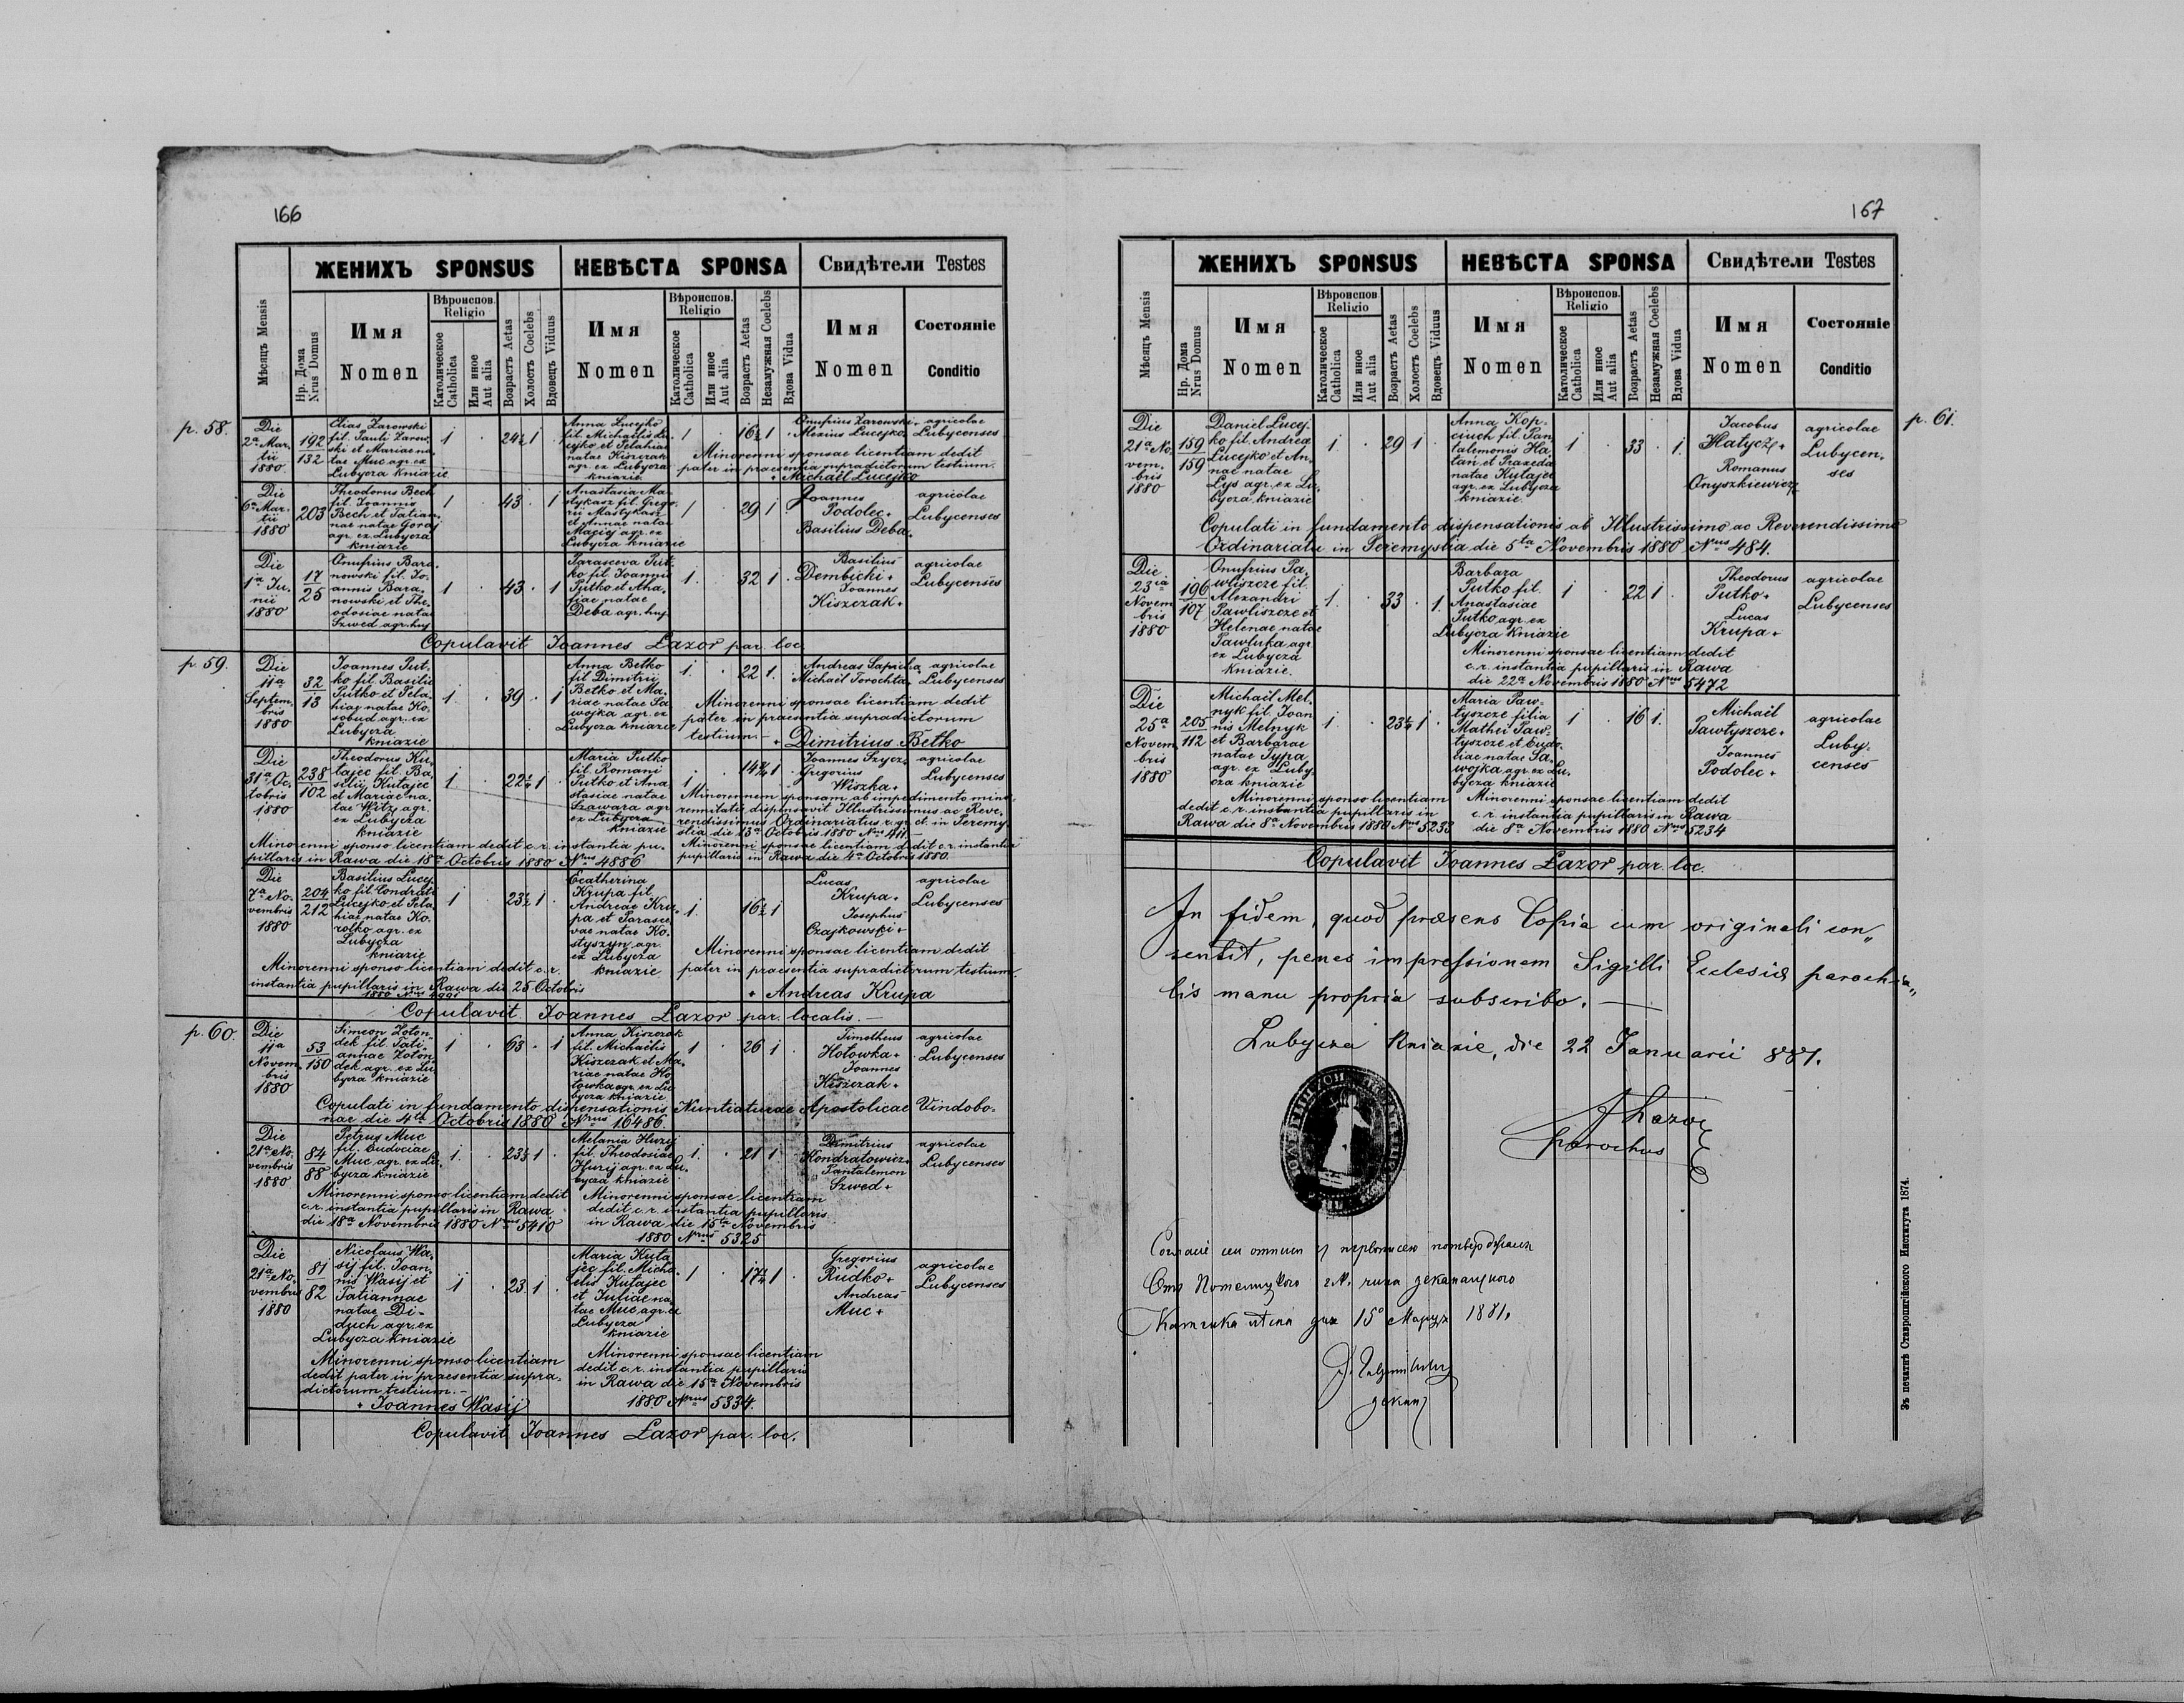 166
ЖЕНИХЪ SPONSUS НЕВѢСТА SPONSA Свидѣтели Testes
Мѣсяцъ Mensis
Нр. Дома Nrus Domus
Имя Nomen
Вѣроиспов. Religio
Католическое Catholica
Или иное Aut alia
Возрастъ Aetas
Холостъ Coelebs
Вдовецъ Viduus
Имя Nomen
Вѣроиспов. Religio
Католическое Catholica
Или иное Aut alia
Возрастъ Aetas
Незамужная Coelebs
Вдова Vidua
Имя Nomen
Состояніе Conditio
p. 58.
Die
2ª Mar.
tii
1880.
192
132
Elias Zarowski
fil. Pauli Zarow.
ski et Mariae na.
tae Muc agr. ex
Lubycza Kniazie
1 · 24½ 1 ·
Anna Lucejko
fil. Michaëlis Lu.
cejko et Pelahiae
natae Kiszczak
agr. ex Lubycza
kniazie
1 · 16½ 1 ·
Onufrius Zarowski +
Alexius Lucejko
agricolae
Lubycenses
Minorenni sponsae licentiam dedit
pater in praesentia supradictorum testium.
+ Michaël Lucejko
Die
6ª Mar.
tii
1880
203
Theodorus Bech
fil. Joannis
Bech et Tatian.
nae natae Goraj
agr. ex Lubycza
kniazie
1 · 43 · 1
Anastasia Ma.
stykasz fil. Grego.
rii Mastykasz
et Annae natae
Maciej agr. ex
Lubycza kniazie
1 · 29 1 ·
Joannes
Podolec +
Basilius Deba.
agricolae
Lubycenses
Die
1ª Ju.
nii
1880
17
25
Onufrius Bara.
nowski fil. Jo.
annis Bara.
nowski et The.
odosiae natae
Szwed agr. huj.
1 · 43 · 1
Parasceva Put.
ko fil. Joannis
Putko et Aha.
fiae natae
Deba agr. huj.
1. 32 1 ·
Basilius
Dembicki +
Joannes
Kiszczak +
agricolae
Lubycenses
Copulavit Joannes Łazor par. loc.
p. 59.
Die
11ª
Septem.
bris
1880
32
13
Joannes Put.
ko fil. Basilii
Putko et Pela.
hiae natae Ko.
sobud agr. ex
Lubycza
kniazie
1. · 39 · 1
Anna Betko
fil Dimitrii
Betko et Ma.
riae natae Sa.
wojka agr. ex
Lubycza kniazie
1. · 22 1.
Andreas Sapicha +
Michaël Torochta +
agricolae
Lubycenses
Minorenni sponsae licentiam dedit
pater in praesentia supradictorum
testium. –
+ Dimitrius Betko
Die
31ª Oc.
tobris
1880
238
102
Theodorus Ku.
tajec fil. Ba.
silii Kutajec
et Mariae na.
tae Witz agr.
ex Lubycza
kniazie
1 · 22½ 1 ·
Maria Putko
fil. Romani
Putko et Ana.
stasiae natae
Szawara agr
ex Lubycza
kniazie
1 · 1 ·
Joannes Szycz +
Gregorius
Wiszka +
agricolae
Lubycenses
Minorennem sponsam ab impedimento mino.
rennitatis dispensavit Illustrissimus ac Reve.
rendissimus Ordinariatus r. gr. ct. in Peremy.
slia die 13ª Octobris 1880 Nrus 411. –
Minorenni sponso licentiam dedit c. r. instantia pu.
pillaris in Rawa die 18ª Octobris 1880 Nrus 4886
Minorenni sponsae licentiam dedit c. r. instantia
pupillaris in Rawa die 4ª Octobris 1880.
Die
7ª No.
vembris
1880
204
212
Basilius Lucej.
ko fil. Condrati
Lucejko et Pela.
hiae natae Ko.
rolko agr. ex
Lubycza
kniazie
1 · 23½ 1 ·
Ecatherina
Krupa fil.
Andreae Kru.
pa et Parasce.
vae natae Ko.
styszyn agr.
ex Lubycza
kniazie
1. 16½ 1
Lucas
Krupa +
Josephus
Czajkowski +
agricolae
Lubycenses
Minorenni sponso licentiam dedit c. r.
instantia pupillaris in Rawa die 25 Octobris
Minorenni sponsae licentiam dedit
pater in praesentia supradictorum testium
+ Andreas Krupa
Copulavit Joannes Łazor par. localis. –
p. 60.
Die
11ª
Novem.
bris
1880
53
150
Simeon Zoton.
dek fil. Tati.
annae Zoton.
dek agr. ex Lu.
bycza kniazie
1 · 63 · 1
Anna Kiszczak
fil. Michaëlis
Kiszczak et Ma.
riae natae Ho.
towka agr. ex Lu.
bycza kniazie
1 · 26 1 ·
Timotheus
Hotowka +
Joannes
Kiszczak +
agricolae
Lubycenses
Copulati in fundamento dispensationis Nuntiaturae Apostolicae Vindobo.
nae die 4ta Octobris 1880 Nrus 16486.
Die
21ª No.
vembris
1880
84
88
Petrus Muc
fil. Eudociae
Muc agr. ex Lu.
bycza kniazie
1. · 23½ 1 ·
Melania Huzij
fil. Theodosiae
Huzij agr. ex Lu.
bycza kniazie
1. · 21 1 ·
Dimitrius
Kondratowicz +
Pantalemon
Szwed +
agricolae
Lubycenses
Minorenni sponso licentiam dedit
c. r. instantia pupillaris in Rawa
die 18ª Novembris 1880 Nrus 5410
Minorenni sponsae licentiam
dedit c. r. instantia pupillaris
in Rawa die 15ta Novembris
1880 Nrus 5325
Die
21ª No.
vembris
1880
81
82
Nicolaus Wa.
sij fil. Joan.
nis Wasij et
Tatiannae
natae Di–
duch agr. ex
Lubycza kniazie
1 · 23 1 ·
Maria Kuta.
jec fil. Micha.
ëlis Kutajec
et Juliae na.
tae Muc agr. ex
Lubycza
kniazie
1 · 17½ 1 ·
Gregorius
Rudko +
Andreas
Muc +
agricolae
Lubycenses
Minorenni sponso licentiam
dedit pater in praesentia supra.
dictorum testium. –
+ Joannes Wasij
Minorenni sponsae licentiam
dedit c. r. instantia pupillaris
in Rawa die 15ta Novembris
1880 Nrus 5334.
Copulavit Joannes Łazor par. loc.
167
ЖЕНИХЪ SPONSUS НЕВѢСТА SPONSA Свидѣтели Testes
Мѣсяцъ Mensis
Нр. Дома Nrus Domus
Имя Nomen
Вѣроиспов. Religio
Католическое Catholica
Или иное Aut alia
Возрастъ Aetas
Холостъ Coelebs
Вдовецъ Viduus
Имя Nomen
Вѣроиспов. Religio
Католическое Catholica
Или иное Aut alia
Возрастъ Aetas
Незамужная Coelebs
Вдова Vidua
Имя Nomen
Состояніе Conditio
p. 61.
Die
21ª No.
vem.
bris
1880
159
159
Daniel Lucej.
ko fil. Andreae
Lucejko et An.
nae natae
Lys agr. ex Lu.
bycza kniazie
1. · 29 1 ·
Anna Kop.
ciuch fil. Pan.
talemonis Ha.
tan et Praxeda
natae Kutajec
agr. ex Lubycza
kniazie.
1 · 33 · 1.
Jacobus
Hatycz +
Romanus
Onyszkiewicz +
agricolae
Lubycen.
ses
Copulati in fundamento dispensationis ab Illustrissimo ac Reverendissimo
Ordinariatu in Peremyslia die 5ta Novembris 1880 Nrus 484.
Die
23ia
Novem
bris
1880
196
107
Onufrius Pa.
wliszcze fil.
Alexandri
Pawliszcze et
Helenae natae
Pawluka agr
ex Lubycza
Kniazie.
1. · 33 · 1.
Barbara
Putko fil.
Anastasiae
Putko agr. ex
Lubycza Kniazie
1 · 22 1 ·
Theodorus
Putko +
Lucas
Krupa +
agricolae
Lubycenses
Minorenni sponsae licentiam dedit
c. r. instantia pupillaris in Rawa
die 22ª Novembris 1880 Nrus 5472
Die
25ª
Novem
bris
1880
205
112
Michaël Mel.
nyk fil. Joan
nis Melnyk
et Barbarae
natae Typra
agr. ex Luby.
cza kniazie
1. · 23½ 1 ·
Maria Paw.
tyszcze filia
Mathei Paw.
tyszcze et Eudo.
ciae natae Sa.
wojka agr. ex Lu.
bycza kniazie
1 · 16 1.
Michaël
Pawtyszcze +
Joannes
Podolec +
agricolae
Luby.
censes
Minorenni sponso licentiam
dedit c. r. instantia pupillaris in
Rawa die 8ª Novembris 1880 Nrus 5233
Minorenni sponsae licentiam dedit
c. r. instantia pupillaris in Rawa
die 8ª Novembris 1880 Nrus 5234
Copulavit Joannes Łazor par. loc.
In fidem, quod præsens Copia cum originali con„
sentit, penes impressionem Sigilli Eclesiæ parochia„
lis manu propria subscribo. —
Lubycza Kniazie, die 22 Januarii 881.
parochus
15º 1881.
Зъ печатнѣ Ставропигійского Института 1874.